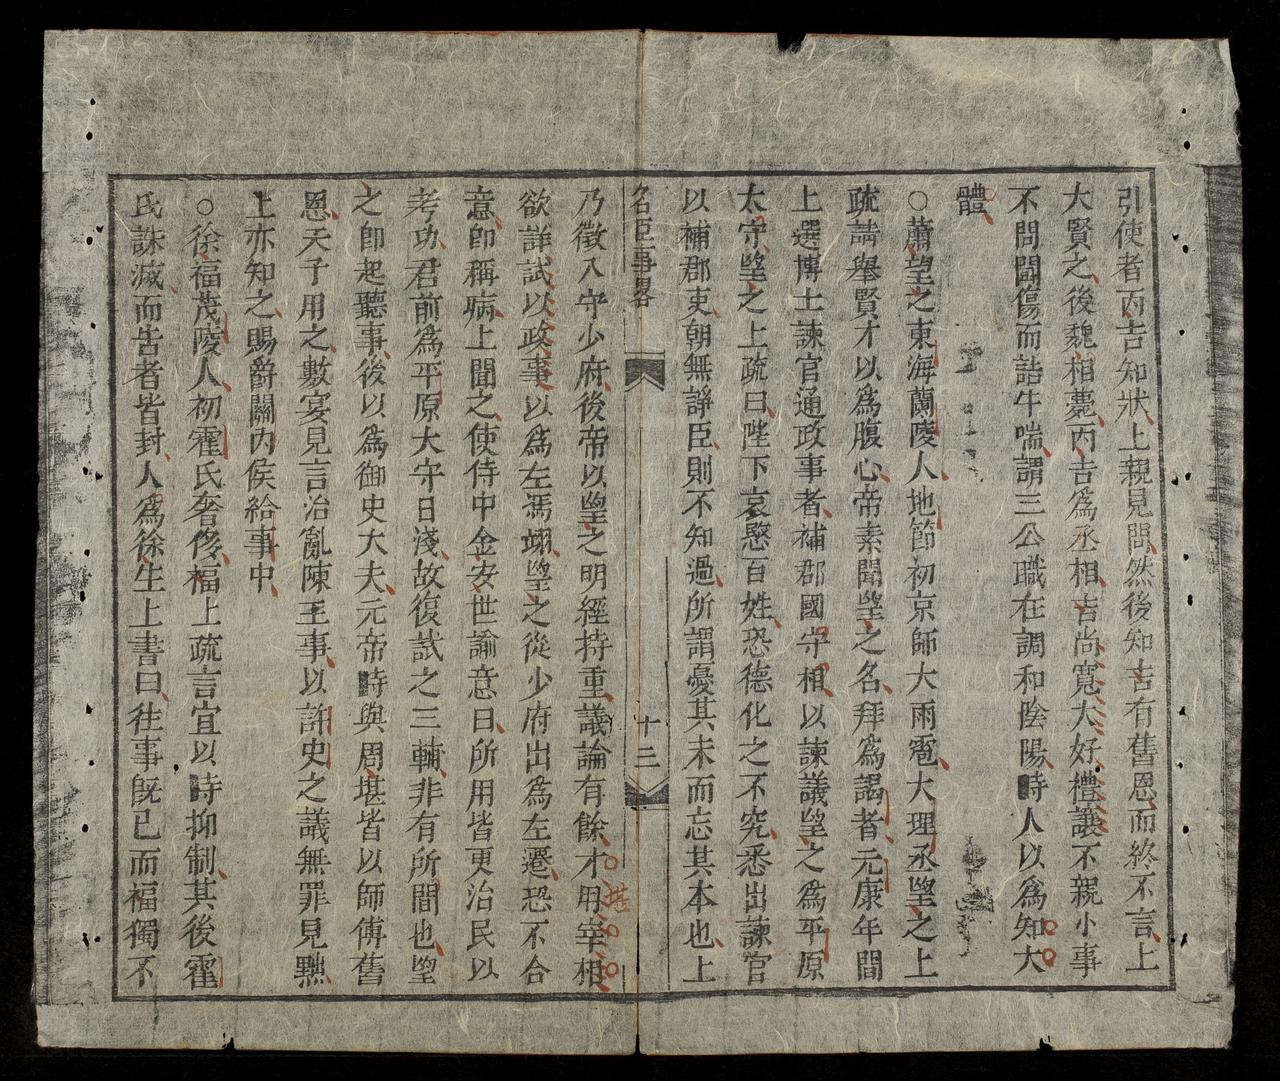 引使者丙吉知狀上親見問然後知吉有舊恩而終不言上
大賢之後魏相薨丙吉爲丞相吉尚寬大好禮讓不親小事
不問鬭傷而詰牛喘謂三公職在調和陰陽時人以爲知大
體
○蕭望之東海蘭陵人地節初京師大雨雹大理丞望之上
疏請舉賢才以爲腹心帝素聞望之名拜爲謁者元康年間
上選博士諫官通政事者補郡國守相以諫議望之爲平原
太守望之上疏曰陛下哀愍百姓恐德化之不究悉出諫官
以補郡吏朝無諍臣則不知過所謂憂其末而忘其本也上
名臣事畧
十三
乃徵入守少府後帝以望之明經持重議論有餘才用宰相
堪
欲詳試以政事以爲左馮翊望之從少府出爲左遷恐不合
意卽稱病上聞之使侍中金安世諭意曰所用皆更治民以
考功君前爲平原大守日淺故復試之三輔非有所間也望
之卽起聽事後以爲御史大夫元帝時與周堪皆以師傅舊
恩天子用之數宴見言治亂陳王事以許史之議無罪見黜
上亦知之賜爵關內侯給事中
○徐福茂陵人初霍氏奢侈福上疏言宜以時抑制其後霍
氏誅滅而告者皆封人爲徐生上書曰往事旣已而福獨不